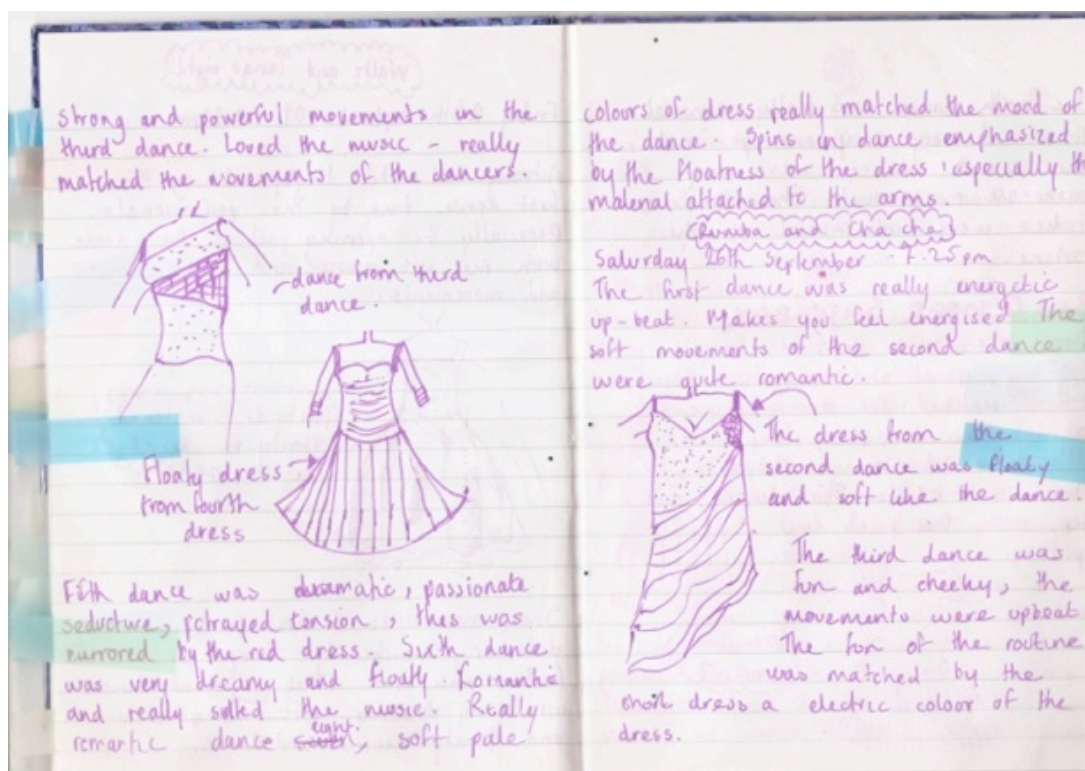 strong and powerful movements in the
third dance. Loved the music - really
matched the movements of the dancers.
dance from third
dance.
Floaty dress
from fourth
dress
Fifth dance was dramatic, passionate
seductive, potrayed tension, this was
mirrored by the red dress. Sixth dance
was very dreamy and floaty. Romantic
and really suited the music. Really
romantic dance eight, soft pale
colours of dress really matched the mood of
the dance. Spins in dance emphasized
by the floatness of the dress, especially the
material attached to the arms.
Rumba and Cha cha
Saturday 26th September - 7.25pm
The first dance was really energetic
up-beat. Makes you feel energised The
soft movements of the second dance
were quite romantic.
The dress from the
second dance was floaty
and soft like the dance.
The third dance was
fun and cheeky, the
movements were upbeat
The fun of the routine
was matched by the
dress a electric colour of the
dress.